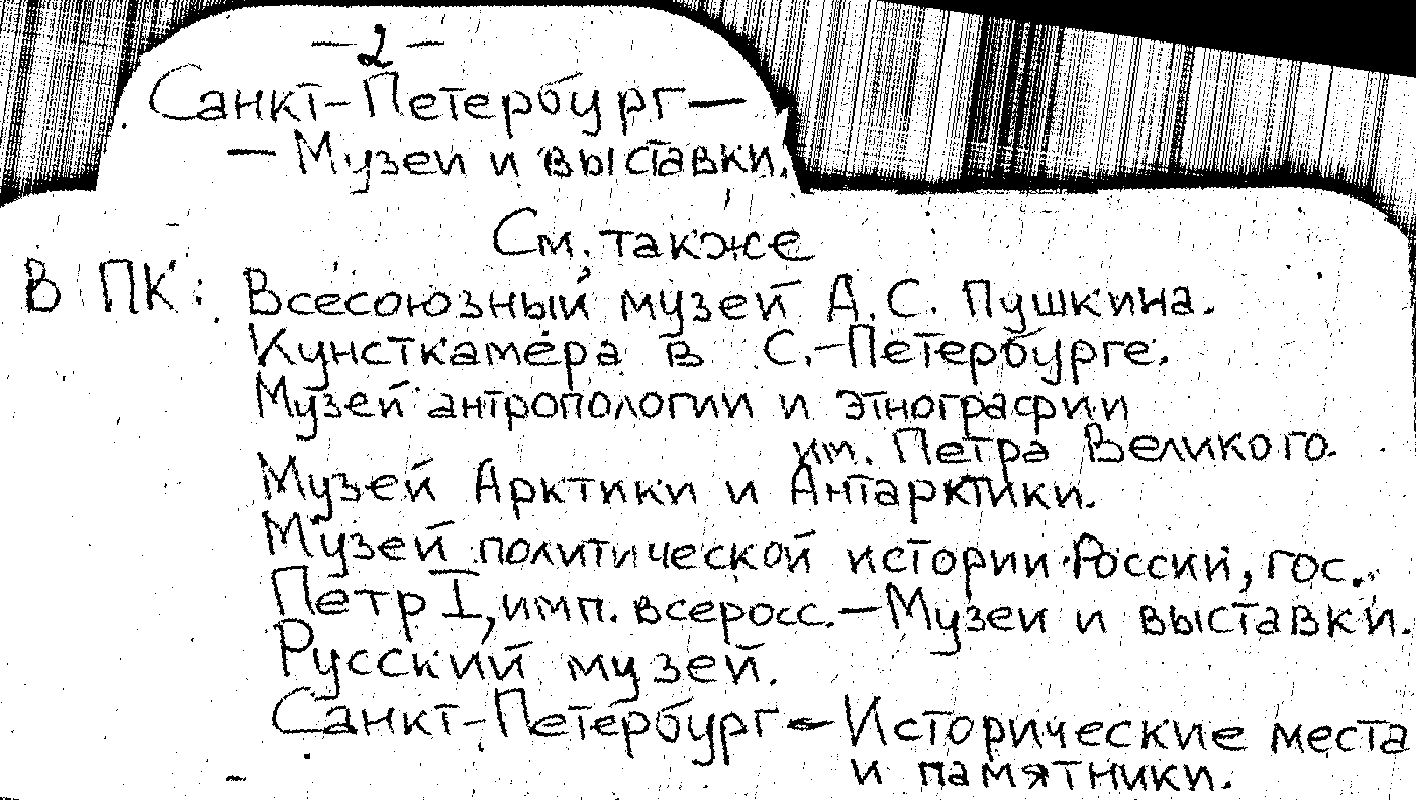 — 2 —
Санкт-Петербург —
— Музеи и выставки.
См. также
В ПК: Всесоюзный музей А.С. Пушкина.
Кунсткамера в С.-Петербурге.
Музей антропологии и этнографии
им. Петра Великого.
Музей Арктики и Антарктики.
Музей политической истории России, гос.
Петр I, имп. всеросс. — Музеи и выставки.
Русский музей.
Санкт-Петербург — Исторические места
и памятники.